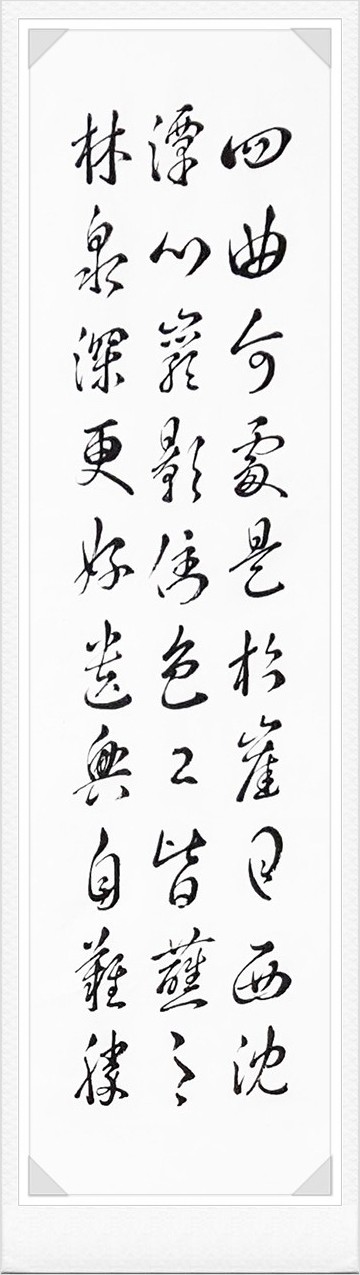 四曲何處是松崖日西沈
潭心巖影倒色々皆蘸之
林泉深更好興自難勝